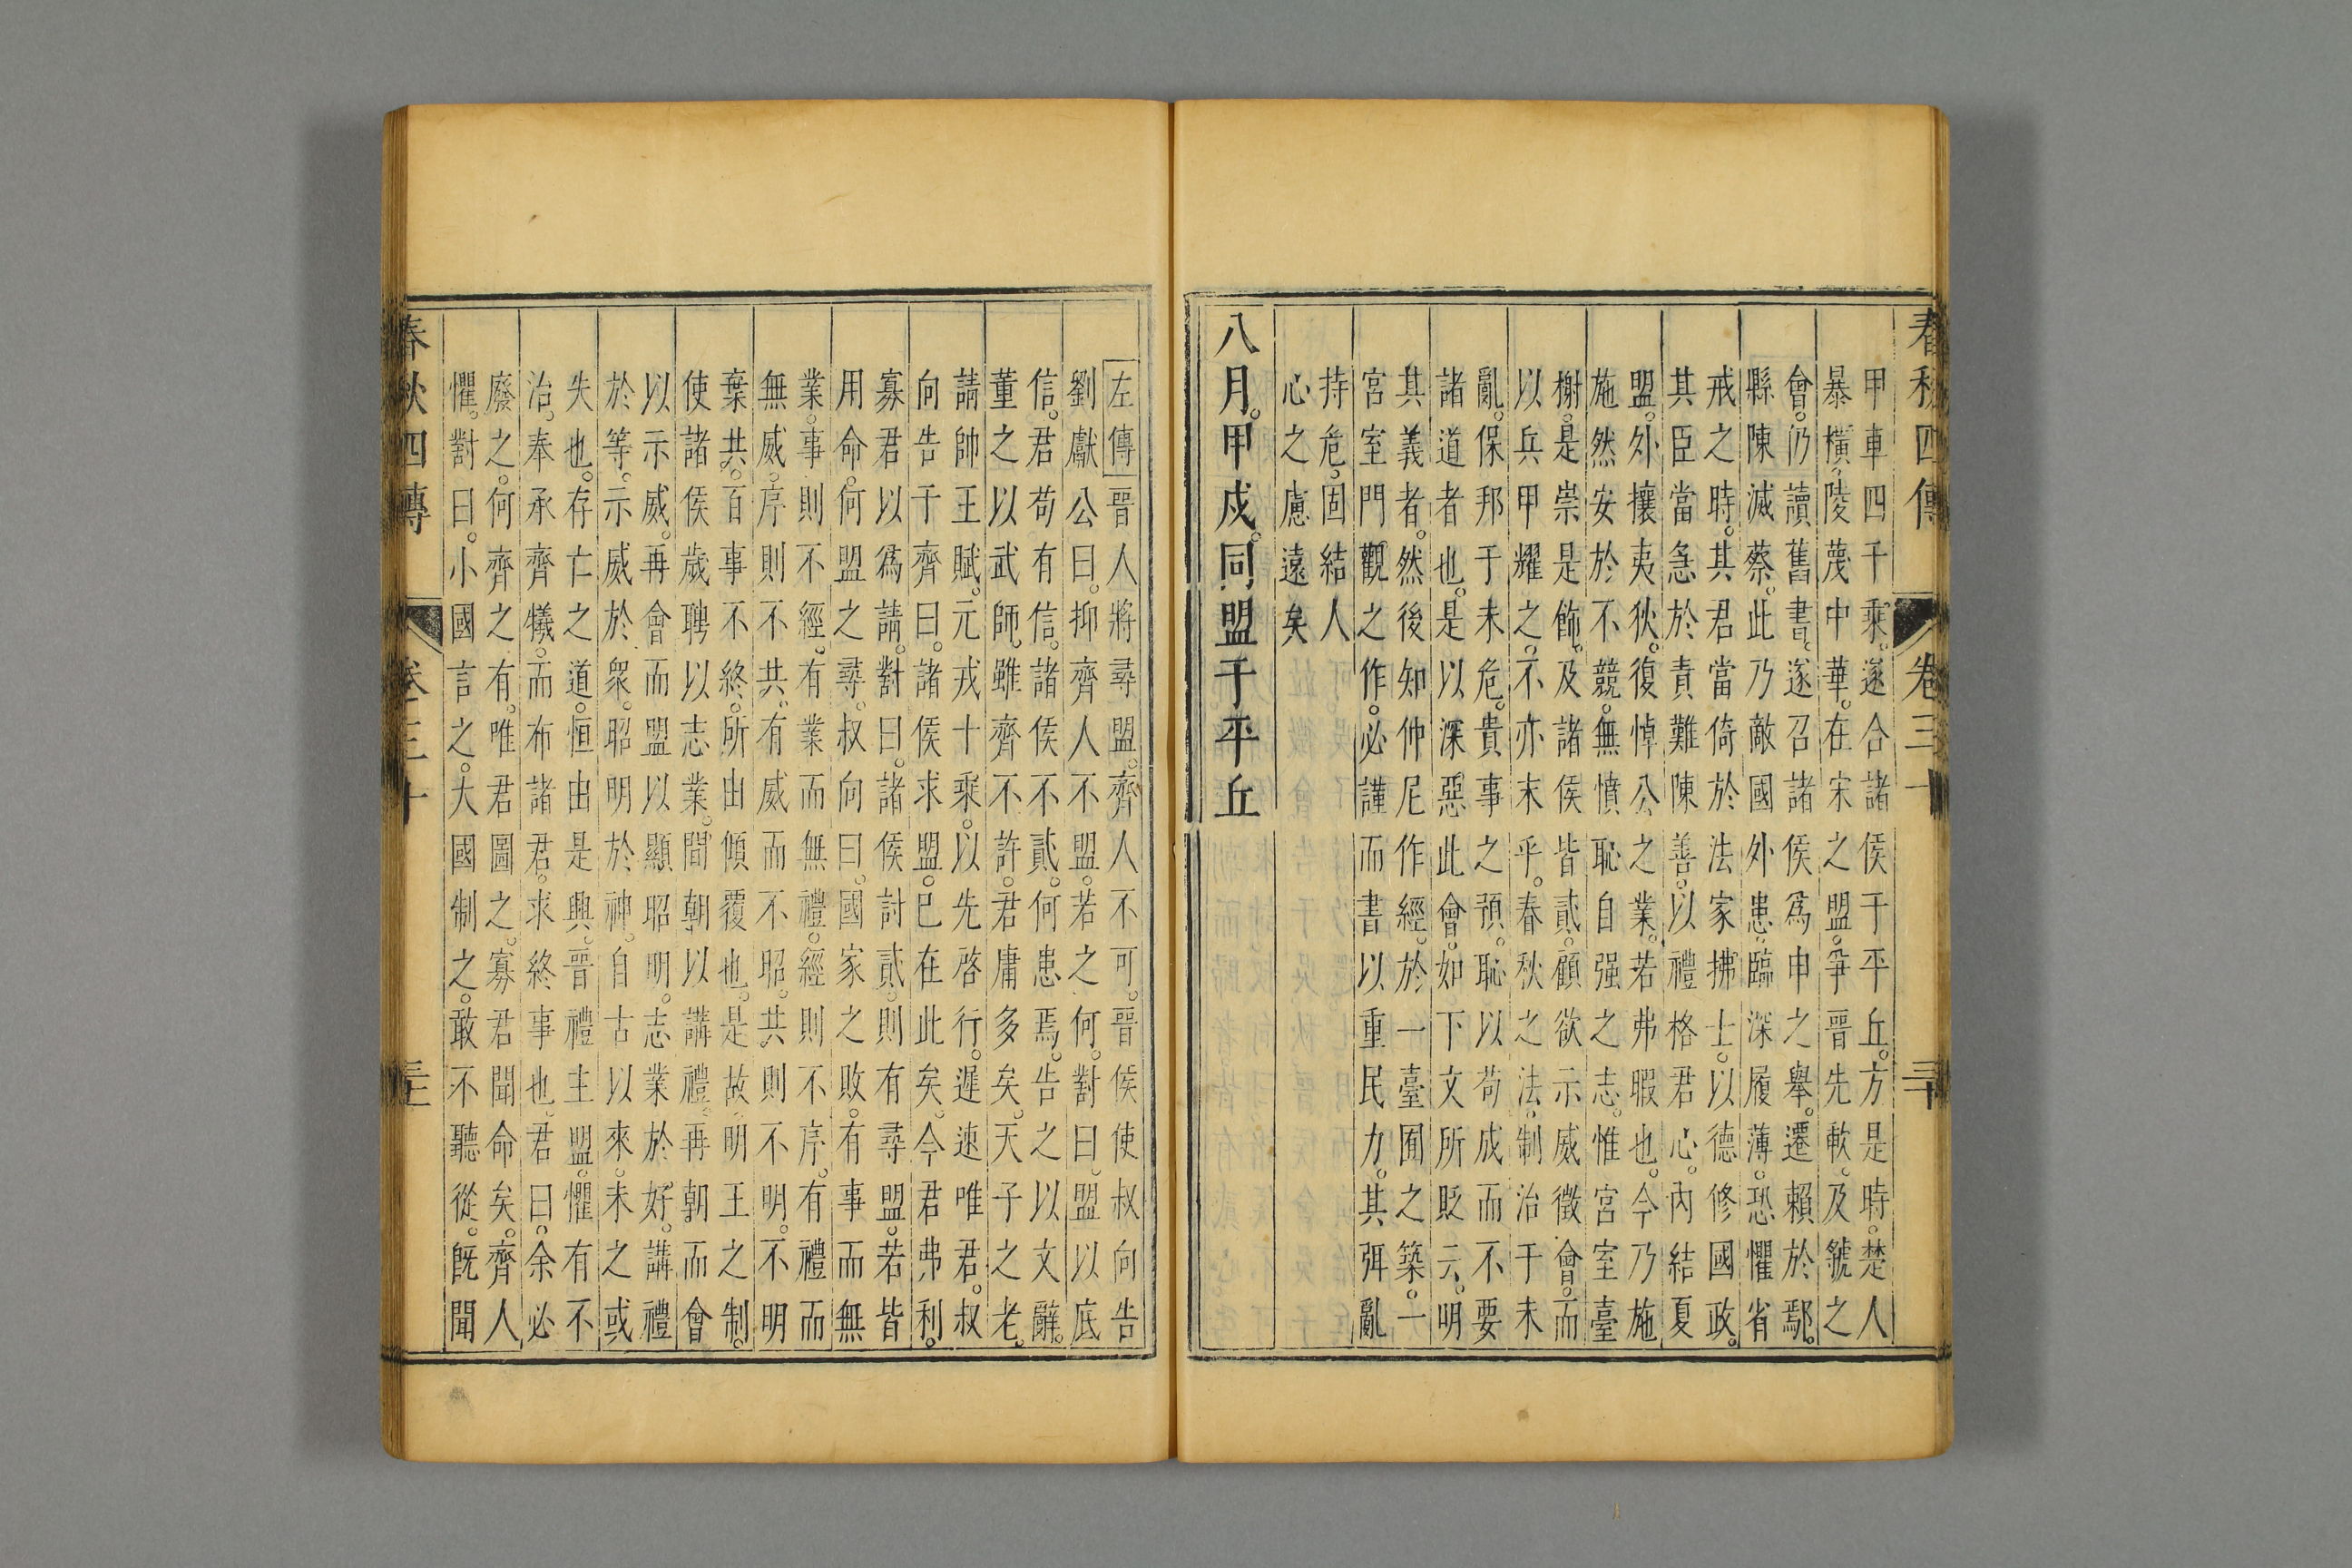 春秋四傳 卷三十 三十
甲車四千乘。遂合諸侯于平丘。方是時。楚人
暴橫。陵蔑中華。在宋之盟。爭晉先軟。及虢之
會。仍讀舊書。遂召諸侯。爲申之舉。遷賴於鄢。
縣陳滅蔡。此乃敵國外患。臨深履薄。恐懼省
戒之時。其君當倚於法家拂士。以德修國政。
其臣當急於責難陳善。以禮格君心。內結夏
盟。外攘夷狄。復悼公之業。若弗暇也。今乃施
施然安於不競。無憤恥自强之志。惟宮室臺
榭。是崇是飾。及諸侯皆貳。顧欲示威徵會。而
以兵甲耀之。不亦末乎。春秋之法。制治于未
亂。保邦于未危。貴事之預。恥以苟成而不要
諸道者也。是以深惡此會。如下文所貶云。明
其義者。然後知仲尼作經。於一臺囿之築。一
宮室門觀之作。必謹而書以重民力。其弭亂
持危。固結人
心之慮遠矣
八月。甲戌。同盟于平丘
左傳 晉人將尋盟。齊人不可。晉侯使叔向告
劉獻公曰。抑齊人不盟。若之何。對曰。盟以底
信。君苟有信。諸侯不貳。何患焉。告之以文辭。
董之以武師。雖齊不許。君庸多矣。天子之老。
請帥王賦。元戎十乘。以先啓行。遲速唯君。叔
向告于齊曰。諸侯求盟。已在此矣。今君弗利。
寡君以爲請。對曰。諸侯討貳。則有尋盟。若皆
用命。何盟之尋。叔向曰。國家之敗。有事而無
業。事則不經。有業而無禮。經則不序。有禮而
無威。序則不共。有威而不昭。共則不明。不明
棄共。百事不終。所由傾覆也。是故明王之制。
使諸侯歲聘以志業。間朝以講禮。再朝而會
以示威。再會而盟以顯昭明。志業於好。講禮
於等。示威於衆。昭明於神。自古以來。未之或
失也。存亡之道。恒由是興。晉禮主盟。懼有不
治。奉承齊犧。而布諸君。求終事也。君曰。余必
廢之。何齊之有。唯君圖之。寡君聞命矣。齊人
懼。對曰。小國言之。大國制之。敢不聽從。旣聞
春秋四傳 卷三十 三十